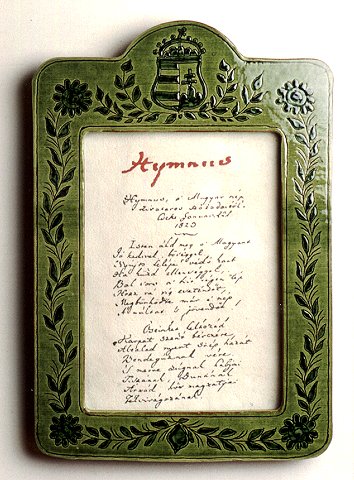 Hymnus
Hymnus, a' Magyar nép
zivataros századaiból.
Cseke
1823
Isten áldd meg a' Magyart
Jó kedvvel, bőséggel,
Nyújts feléje védő kart
Ha küzd ellenséggel;
Bal sors a' kit régen tép,
Hozz rá víg esztendőt,
Megbűnhődte már e' nép
A' múltat 's jövendőt!
Őseinket felhozád
Kárpát szent bérczére,
Általad nyert szép hazát
Bendegúznak vére.
'S merre zúgnak habjai
Tiszának, Dunának,
Árpád hős magzatjai
Felvirágozának.